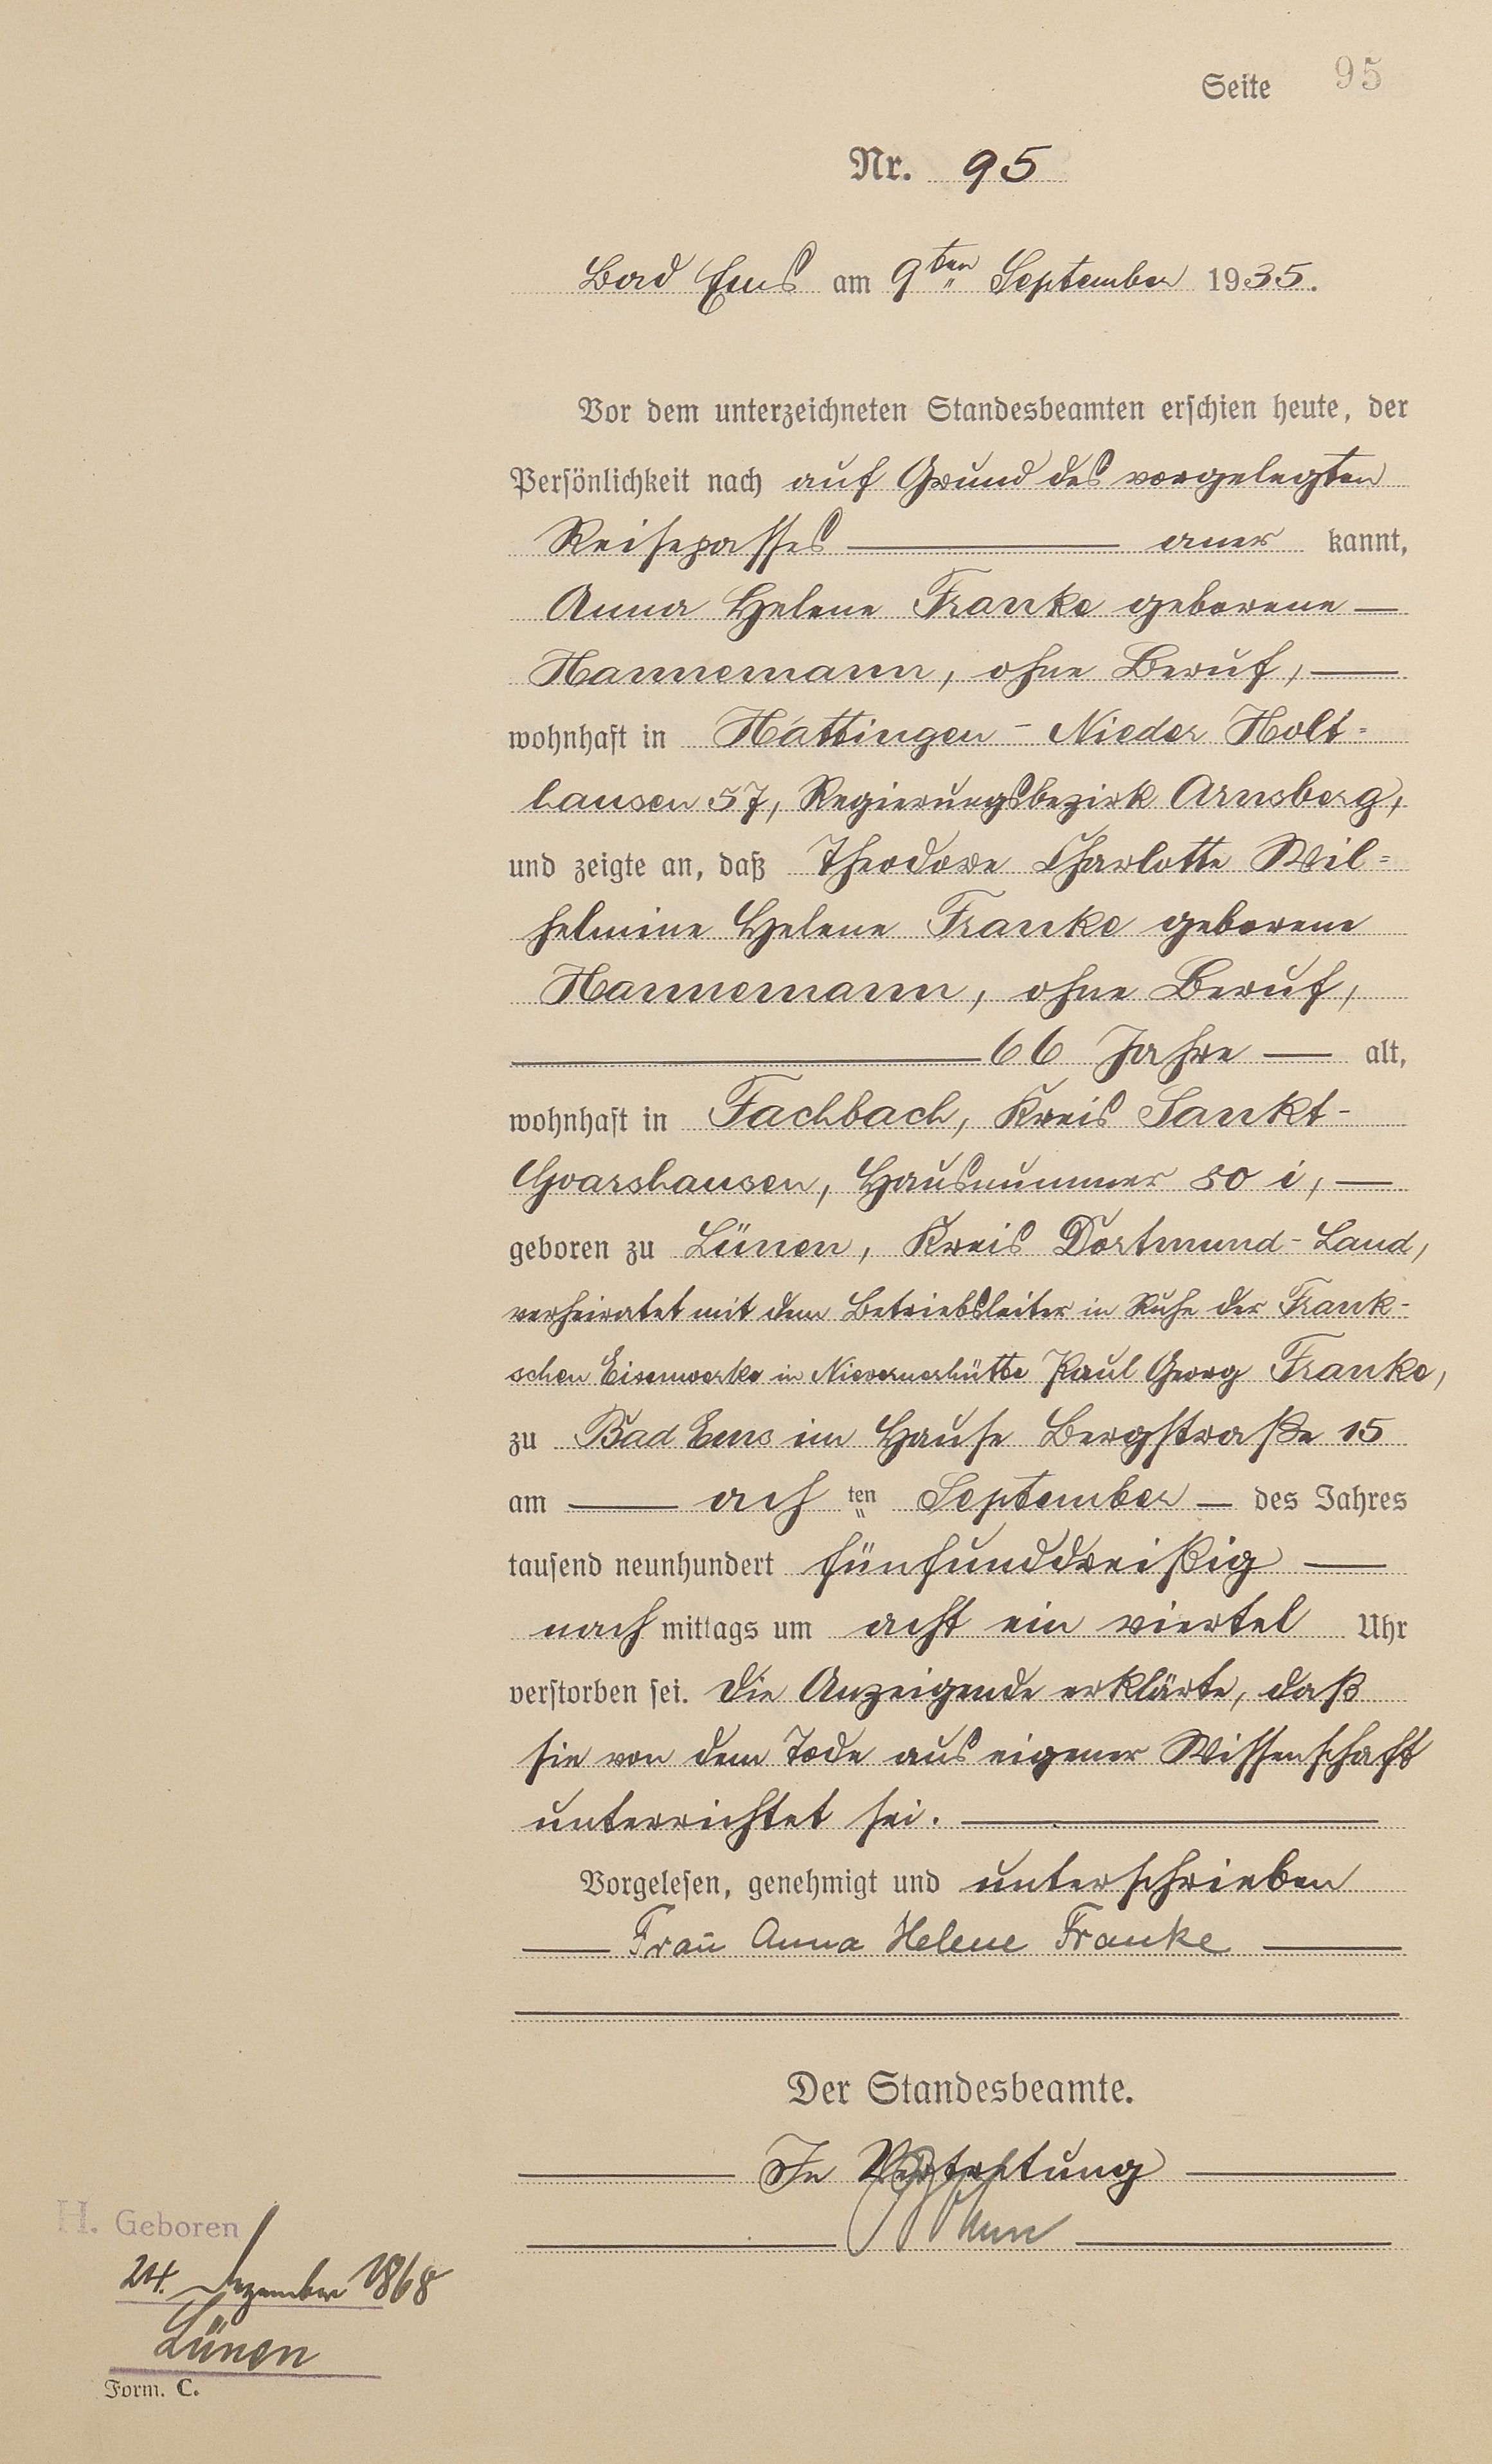 Seite 95
Nr. 95
Bad Ems am 9ten September 1935.
Vor dem unterzeichneten Standesbeamten erschien heute, der
Persönlichkeit nach auf Grund des vorgelegten
Reisepasses aner kannt,
Anna Helene Franke geborene
Hannemann, ohne Beruf,
wohnhaft in Hattingen - Nieder Holt-
hausen 57, Regierungsbezirk Arnsberg,
und zeigte an, daß Theodore Charlotte Wil-
helmine Helene Franke geborene
Hannemann, ohne Beruf,
66 Jahre alt,
wohnhaft in Fachbach, Kreis Sankt-
Goarshausen, Hausnummer 80 i,
geboren zu Lünen, Kreis Dortmund-Land,
verheiratet mit dem Betriebsleiter in Ruhe der Frank-
schen Eisenwerke in Nievernerhütte Paul Georg Franke,
zu Bad Ems im Hause Bergstraße 15
am ach ten September des Jahres
tausend neunhundert fünfunddreißig
nach mittags um acht ein viertel Uhr
verstorben sei. Die Anzeigende erklärte, daß
sie von dem Tode aus eigener Wissenschaft
unterrichtet sei.
Vorgelesen, genehmigt und unterschrieben
Frau Anna Helene Franke
Der Standesbeamte.
In Vertretung
H. Geboren
24. Dezember 1868
Lünen
Form. C.